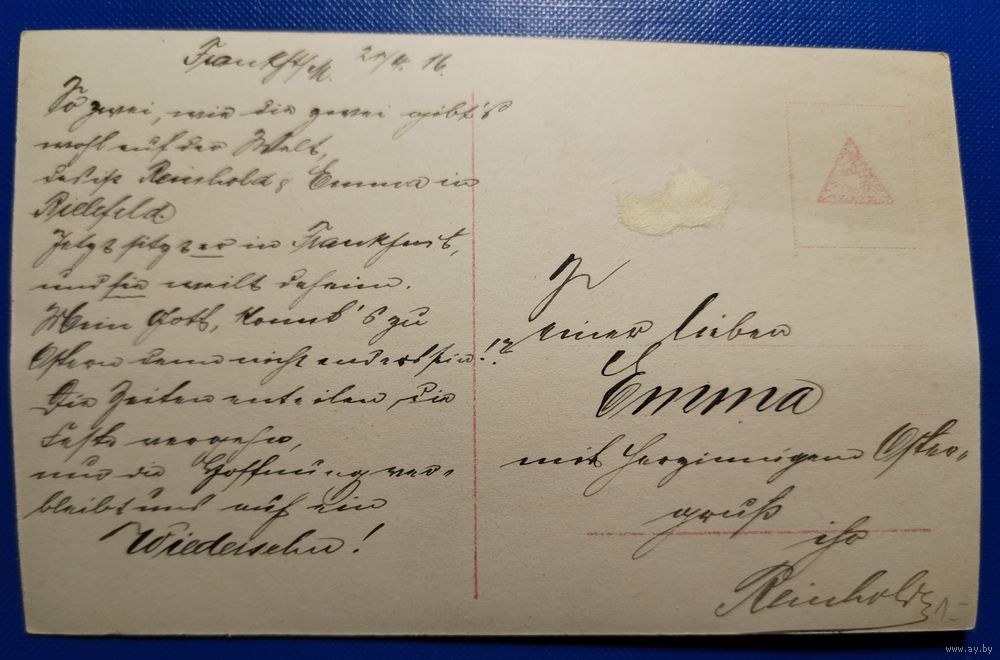 Frankft/M. 20/4. 16.
So zwei, wie die zwei gibt's
wohl auf der Welt,
das ist Reinhold & Emma in
Bielefeld.
Jetzt sitzt er in Frankfurt,
und sie weilt daheim.
Mein Gott, konnt's zu
Ostern denn nicht anders sein!?
Die Zeiten enteilen, die
Feste vergehn,
nur die Hoffnung ver-
bleibt uns auf ein
Wiedersehn!
einer lieben
Emma
mit herzinnigem Oster-
gruß
ihr
Reinhold
1-
www.ay.by